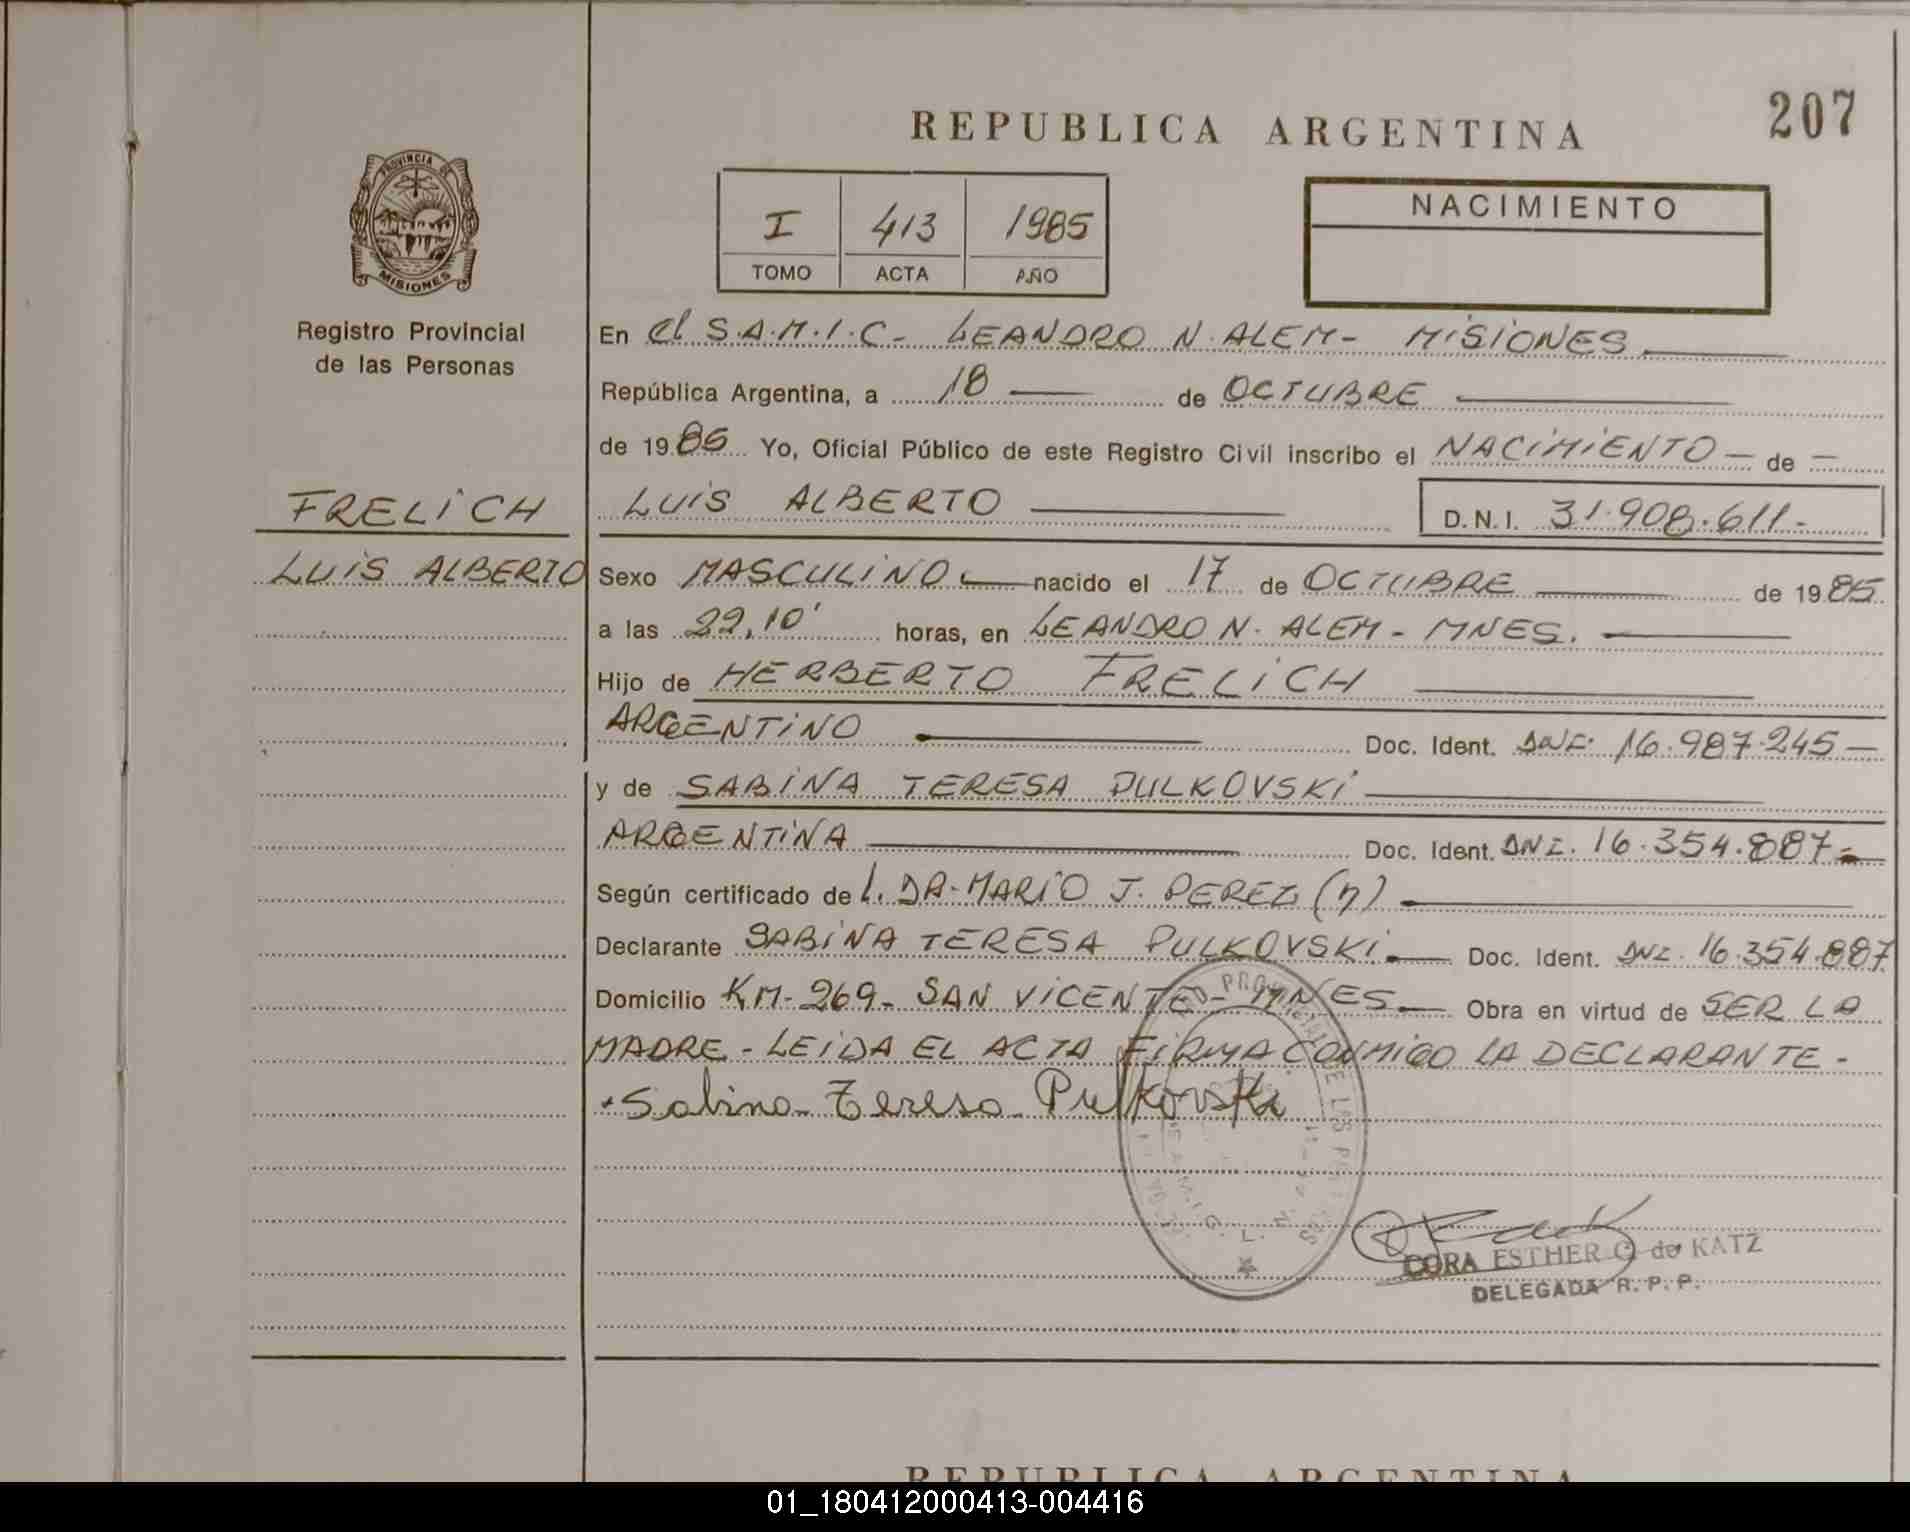 REPUBLICA ARGENTINA
207
PROVINCIA DE
MISIONES
Registro Provincial
de las Personas
I 413 1985
TOMO ACTA AÑO
NACIMIENTO
En el S.A.M.I.C- LEANDRO N. ALEM- MISIONES
República Argentina, a 18 de OCTUBRE
de 1985 Yo, Oficial Público de este Registro Civil inscribo el NACIMIENTO — de —
FRELICH
LUIS ALBERTO
D.N.I. 31.908.611-
LUIS ALBERTO
Sexo MASCULINO — nacido el 17 de OCTUBRE de 1985
a las 22,10' horas, en LEANDRO N. ALEM - MNES.
Hijo de HERBERTO FRELICH
ARGENTINO Doc. Ident. DNI. 16.987.245—
y de SABINA TERESA PULKOVSKI
ARGENTINA Doc. Ident. DNI. 16.354.887-
Según certificado de DR. MARIO J. PEREZ (n)
Declarante SABINA TERESA PULKOVSKI Doc. Ident. DNI. 16.354.887
Domicilio KM-269- SAN VICENTE- MNES. Obra en virtud de SER LA
MADRE - LEIDA EL ACTA FIRMA CONMIGO LA DECLARANTE -
Sabina Teresa Pulkovski
CORA ESTHER C. de KATZ
DELEGADA R. P. P.
REPUBLICA ARGENTINA
01_180412000413-004416